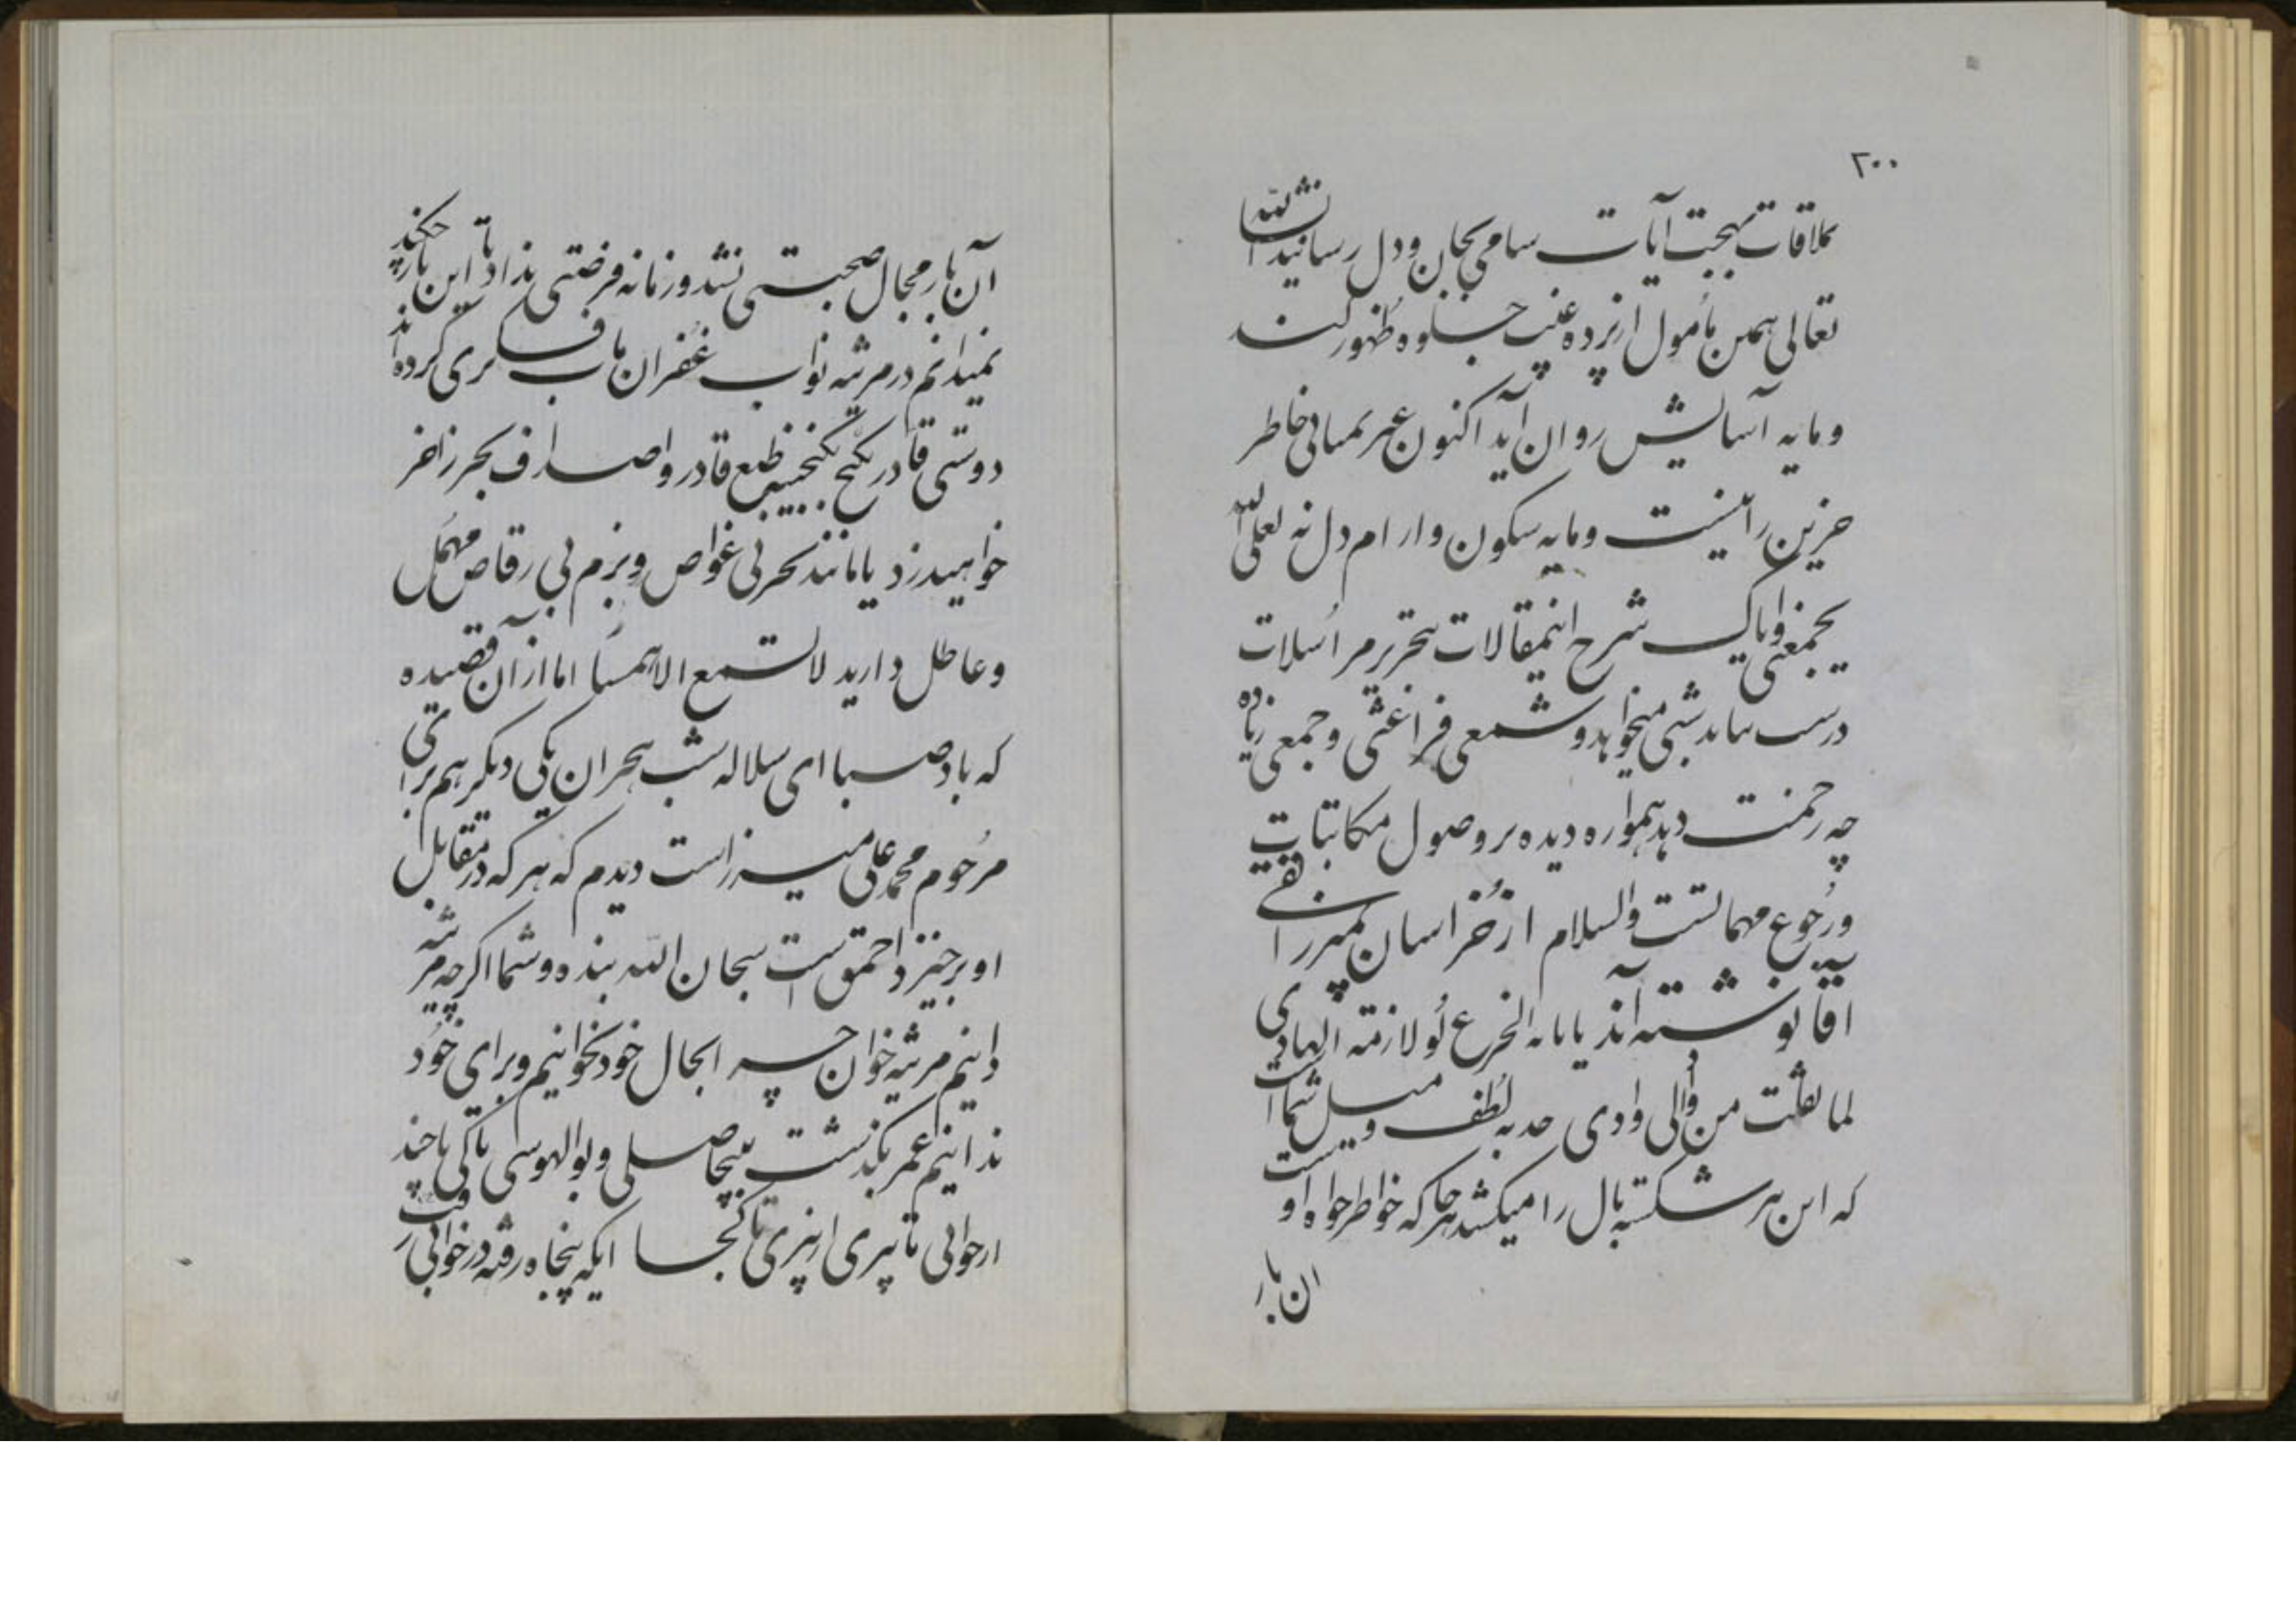 ۲۰۰
بملاقات بهجت آیات سامی بجان و دل رسانید انشاء الله
تعالی همین مأمول از پرده غیب جلوه ظهور کند
و مایه آسایش روان آید اکنون غیر تمنائی خاطر
حزین را نیست و مایه سکون و ارام دل نه لعل الله
یجمعنی وایاک شرح اینمقالات تحریر مراسلات
درست نیاید شبی میخواهد و شمعی فراغتی و جمعی زیاده
چه زحمت دهد همواره دیده بر وصول مکاتبات
و رجوع مهماتست والسلام از خراسان بمیرزا تقی
آقا نوشته اند یا بانة الجزع لولا رنة الهادی
لما تلفت من وادی الی وادی جذبه لطف و میل شما است
که این پر شکسته بال را میکشد هر جا که خواطر خواه اوست
ان بار
آن بار مجال صحبتی نشد و زمانه فرصتی نداد تا این بار چکند
نمیدانم در مرثیه نواب غفران مآب فکری کرده اند
دوستی قادر بگنج گنجینه طبع قادر و اصداف بحر زاخر
خواهید زد یا مانند بحر بی غواص و بزم بی رقاص مهمل
و عاطل دارید لا تسمع الا همسا اما از آن قصیده
که باد صبا ای سلاله شب هجران یکی دیگر هم برای
مرحوم محمد علی میرزاست دیدم که هر که در مقابل
او برخیزد احمق است سبحان الله بنده و شما اگر چه مرثیه
دانیم مرثیه خوان چرا بحال خود نخوانیم و برای خود
ندانیم عمر بگذشت به بیحاصلی و بوالهوسی تا کی تا چند
از جوانی تا پیری از پیری تا کجا ایکه پنجاه رفت و در خوابی